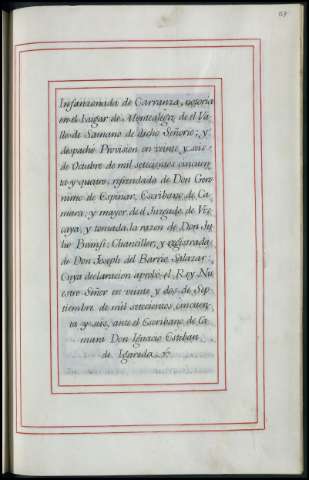 Infanzonada de Carranza, notoria
en el Lugar de Montealegre, de el Va
lle de Samano de dicho Señorio; y
despachó Provision en veinte y seis
de Octubre de mil setecientos cincuen
ta y quatro, refrendada de Don Gero
nimo de Espinar, Escribano de Ca
mara, y mayor de el Juzgado de Viz
caya, y tomada la razon de Don Ju
lio Chanciller, y registrada
de Don Joseph del Barrio Salazar;
Cuya declaracion aprobó el Rey Nu
estro Señor en veinte y dos de Sep
tiembre de mil setecientos cincuen
ta y seis, ante el Escribano de Ca
mara Don Ignacio Esteban
de Igareda